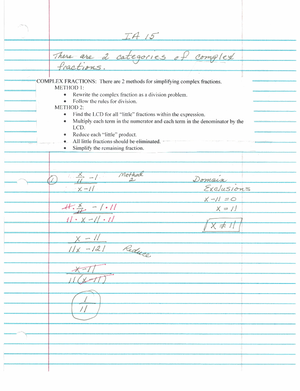 IA 15
There are 2 categories of complex
fractions.
COMPLEX FRACTIONS: There are 2 methods for simplifying complex fractions.
METHOD 1:
• Rewrite the complex fraction as a division problem.
• Follow the rules for division.
METHOD 2:
• Find the LCD for all "little" fractions within the expression.
• Multiply each term in the numerator and each term in the denominator by the
LCD.
• Reduce each "little" product.
• All little fractions should be eliminated.
• Simplify the remaining fraction.
① x/11 - 1 Method 2 Domain
x - 11 Exclusions
x - 11 = 0
11 · x/11 - 1 · 11 x = 11
11 · x - 11 · 11 x ≠ 11
x - 11
11x - 121 Reduce
x - 11
11(x - 11)
1
11